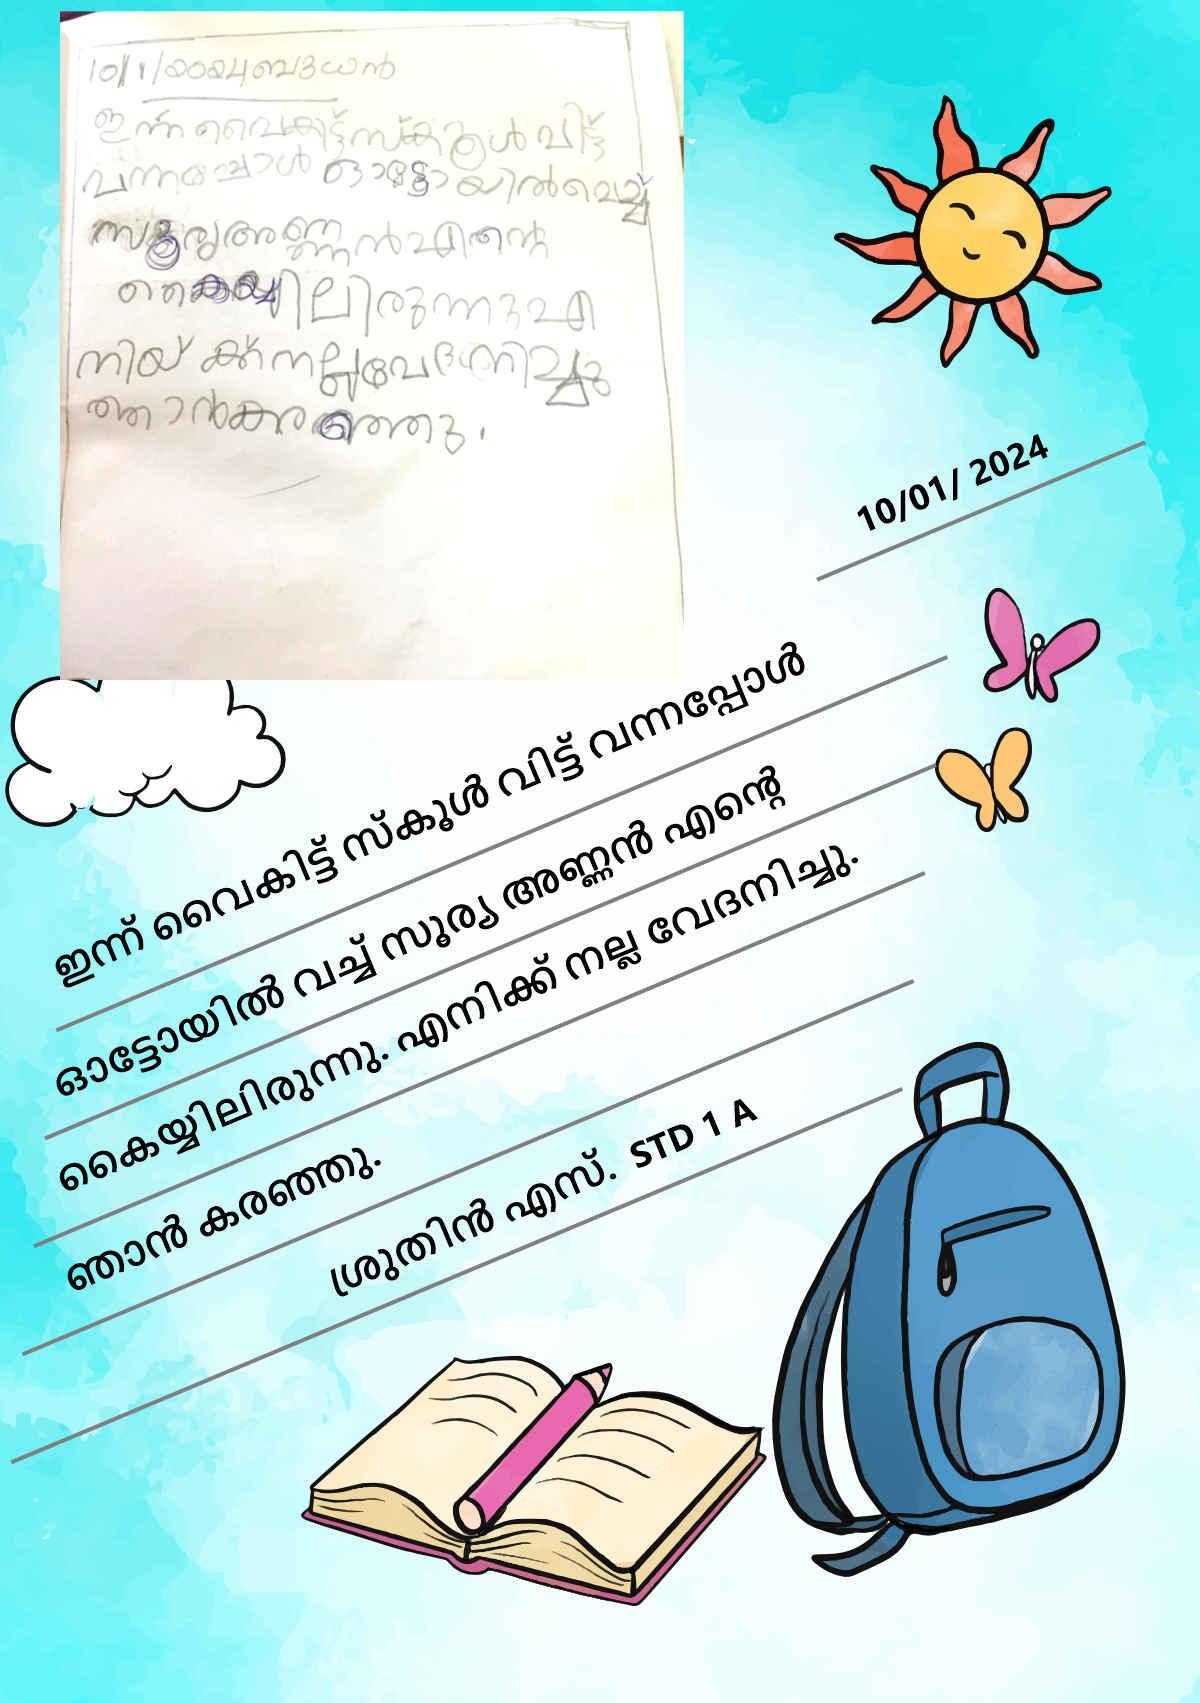 10/1/2024 ബുധൻ
ഇന്ന് വൈകിട്ട് സ്കൂൾ വിട്ട്
വന്നപ്പോൾ ഓട്ടോയിൽ വെച്ച്
സൂര്യ അണ്ണൻ എന്റെ
കൈയ്യിലിരുന്നു എ
നിയ്ക്ക് നല്ല വേദനിച്ചു
ഞാൻ കരഞ്ഞു.
10/01/ 2024
ഇന്ന് വൈകിട്ട് സ്കൂൾ വിട്ട് വന്നപ്പോൾ
ഓട്ടോയിൽ വച്ച് സൂര്യ അണ്ണൻ എന്റെ
കൈയ്യിലിരുന്നു. എനിക്ക് നല്ല വേദനിച്ചു.
ഞാൻ കരഞ്ഞു.
ശ്രുതിൻ എസ്. STD 1 A